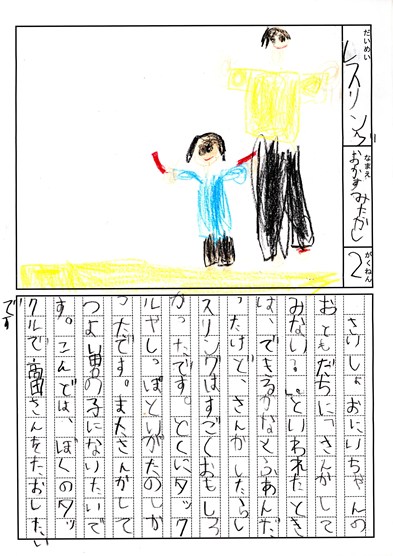 だいめい
レスリング
なまえ
おかずみたかし
がくねん
2
さいしょおにいちゃんの
おともだちに「さんかして
みない?」といわれたとき
は、できるかなくふあんだ
ったけど、さんかしたらレ
スリングはすごくおもしろ
かったです。とくにタック
ルやしっぽとりがたのしか
ったです。またさんかして
つよい男の子になりたいで
す。こんどは、ぼくのタッ
クルで高田さんをたおしたい
です